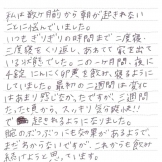 私は数ヶ月前から朝が起きれない
ことに悩んでいました。
いつもギリギリの時間まで二度寝、
三度寝をくり返し、あわてて家を出て
いる状態でした。この一ヶ月間、夜に
4錠にんにく卵黄を飲み、寝るように
していました。最初の二週間は変化
はあまり感じなかったですが、三週間
たった頃から、スッキリ気分爽快
で起きれるようになりました。
腸のぶつぶつにも効果があるようで、
まだあるかないですが、これからも飲み
続けようと思っています。